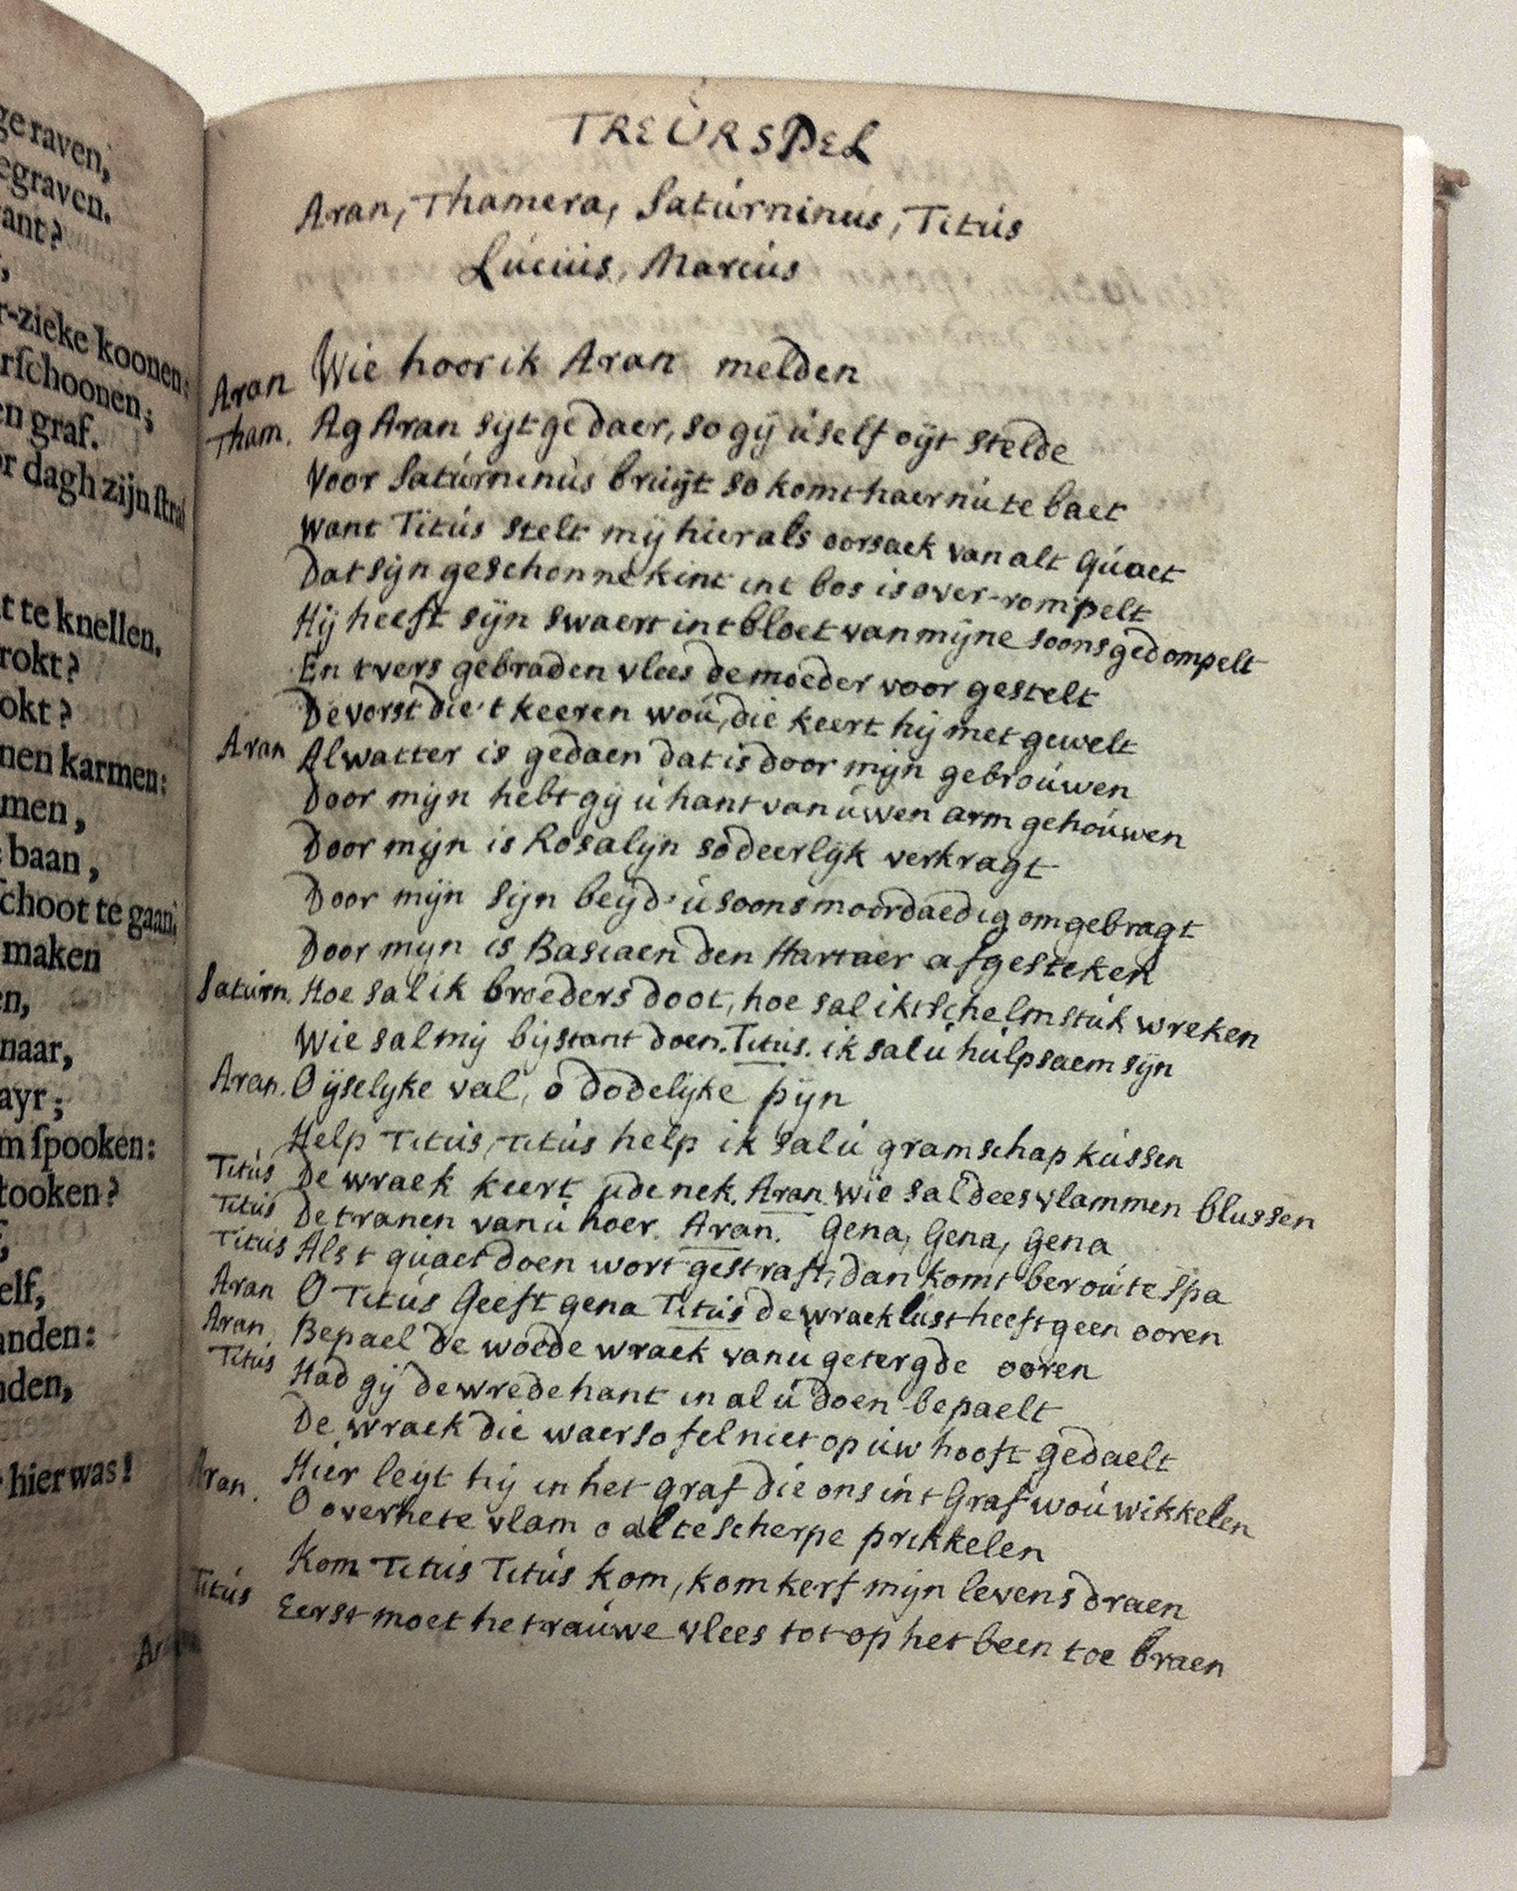 ge raven,
egraven.
ant?
,
r-zieke koonen:
rſchoonen;
en graf.
or dagh zijn ſtraf
t te knellen.
rokt?
okt?
nen karmen:
men,
baan,
ſchoot te gaan,
maken
en,
naar,
ayr;
m ſpooken:
tooken?
,
elf,
anden:
nden,
hier was!
TREÚRSPEL
Aran, Thamera, Satúrninús, Titús
Lúciús, Marcús
Aran Wie hoor ik Aran melden
Tham. Ag Aran sijt ge daer, so gij úself oijt stelde
Voor Satúrninús brúijt so komt haer nú te baet
want Titús stelt mij hier als oorsaek van alt Qúaet
Dat sijn geschonne kint int bos is over-rompelt
Hij heeft sijn swaert int bloet van mijne soons gedompelt
En t vers gebraden vlees de moeder voor gestelt
De vorst die't keeren woú, die keert hij met gewelt
Aran Al watter is gedaen dat is door mijn gebroúwen
Door mijn hebt gij ú hant van úwen arm gehoúwen
Door mijn is Rosalijn so deerlijk verkragt
Door mijn sijn beijd' ú soons moordaedig omgebragt
Door mijn is Basiaen den Hartaer afgesteken
Satúrn. Hoe sal ik broeders doot, hoe sal ikt schelmstúk wreken
Wie sal mij bijstant doen. Titús. ik sal ú húlpsaem sijn
Aran. O ijselijke val, o dodelijke pijn
Help Titús, Titús help ik sal ú gramschap kússen
Titús De wraek keert ú de nek. Aran. Wie sal dees vlammen blussen
Titús De tranen van ú hoer. Aran. Gena, Gena, Gena
Titús Als t qúaet doen wort gestraft, dan komt beroú te spa
Aran O Titús Geeft gena Titús de wraeklúst heeft geen ooren
Aran. Bepael de woede wraek van ú getergde ooren
Titús Had gij de wrede hant in al ú doen bepaelt
De wraek die waer so fel niet op úw hooft gedaelt
Hier leijt hij in het graf die ons int Graf woú wikkelen
Aran. O overhete vlam o al te scherpe prikkelen
Kom Titús Titús kom, kom kerf mijn levens draen
Titús Eerst moet het raúwe vlees tot op het been toe braen